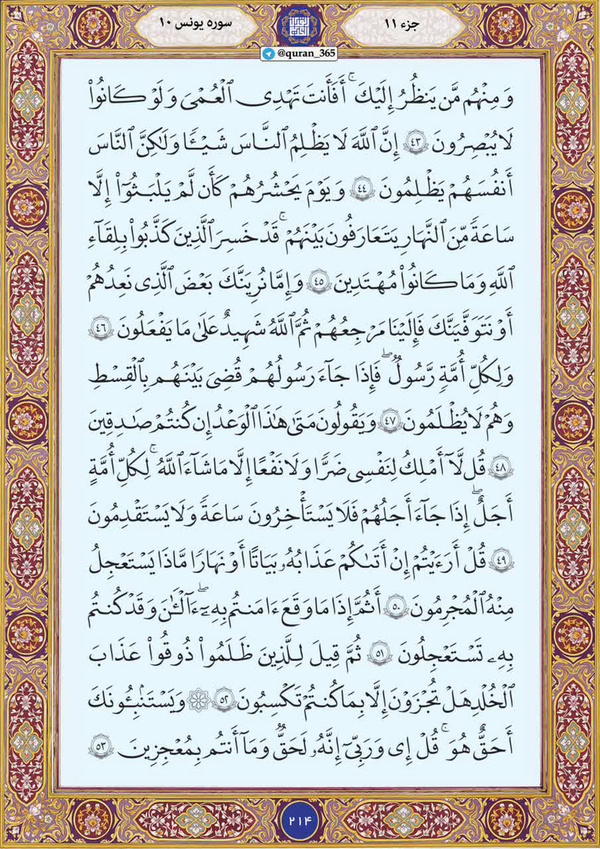 سوره یونس ۱۰
جزء ۱۱
@quran_365
وَمِنْهُم مَّن يَنظُرُ إِلَيْكَ ۚ أَفَأَنتَ تَهْدِى ٱلْعُمْىَ وَلَوْ كَانُوا۟
لَا يُبْصِرُونَ ۝٤٣ إِنَّ ٱللَّهَ لَا يَظْلِمُ ٱلنَّاسَ شَيْـًٔا وَلَـٰكِنَّ ٱلنَّاسَ
أَنفُسَهُمْ يَظْلِمُونَ ۝٤٤ وَيَوْمَ يَحْشُرُهُمْ كَأَن لَّمْ يَلْبَثُوٓا۟ إِلَّا
سَاعَةً مِّنَ ٱلنَّهَارِ يَتَعَارَفُونَ بَيْنَهُمْ ۚ قَدْ خَسِرَ ٱلَّذِينَ كَذَّبُوا۟ بِلِقَآءِ
ٱللَّهِ وَمَا كَانُوا۟ مُهْتَدِينَ ۝٤٥ وَإِمَّا نُرِيَنَّكَ بَعْضَ ٱلَّذِى نَعِدُهُمْ
أَوْ نَتَوَفَّيَنَّكَ فَإِلَيْنَا مَرْجِعُهُمْ ثُمَّ ٱللَّهُ شَهِيدٌ عَلَىٰ مَا يَفْعَلُونَ ۝٤٦
وَلِكُلِّ أُمَّةٍ رَّسُولٌ ۖ فَإِذَا جَآءَ رَسُولُهُمْ قُضِىَ بَيْنَهُم بِٱلْقِسْطِ
وَهُمْ لَا يُظْلَمُونَ ۝٤٧ وَيَقُولُونَ مَتَىٰ هَـٰذَا ٱلْوَعْدُ إِن كُنتُمْ صَـٰدِقِينَ
۝٤٨ قُل لَّآ أَمْلِكُ لِنَفْسِى ضَرًّا وَلَا نَفْعًا إِلَّا مَا شَآءَ ٱللَّهُ ۗ لِكُلِّ أُمَّةٍ
أَجَلٌ ۖ إِذَا جَآءَ أَجَلُهُمْ فَلَا يَسْتَـْٔخِرُونَ سَاعَةً وَلَا يَسْتَقْدِمُونَ
۝٤٩ قُلْ أَرَءَيْتُمْ إِنْ أَتَىٰكُمْ عَذَابُهُۥ بَيَـٰتًا أَوْ نَهَارًا مَّاذَا يَسْتَعْجِلُ
مِنْهُ ٱلْمُجْرِمُونَ ۝٥٠ أَثُمَّ إِذَا مَا وَقَعَ ءَامَنتُم بِهِۦٓ ۚ ءَآلْـَٔـٰنَ وَقَدْ كُنتُم
بِهِۦ تَسْتَعْجِلُونَ ۝٥١ ثُمَّ قِيلَ لِلَّذِينَ ظَلَمُوا۟ ذُوقُوا۟ عَذَابَ
ٱلْخُلْدِ هَلْ تُجْزَوْنَ إِلَّا بِمَا كُنتُمْ تَكْسِبُونَ ۝٥٢ ۞ وَيَسْتَنۢبِـُٔونَكَ
أَحَقٌّ هُوَ ۖ قُلْ إِى وَرَبِّىٓ إِنَّهُۥ لَحَقٌّ ۖ وَمَآ أَنتُم بِمُعْجِزِينَ ۝٥٣
۲۱۴